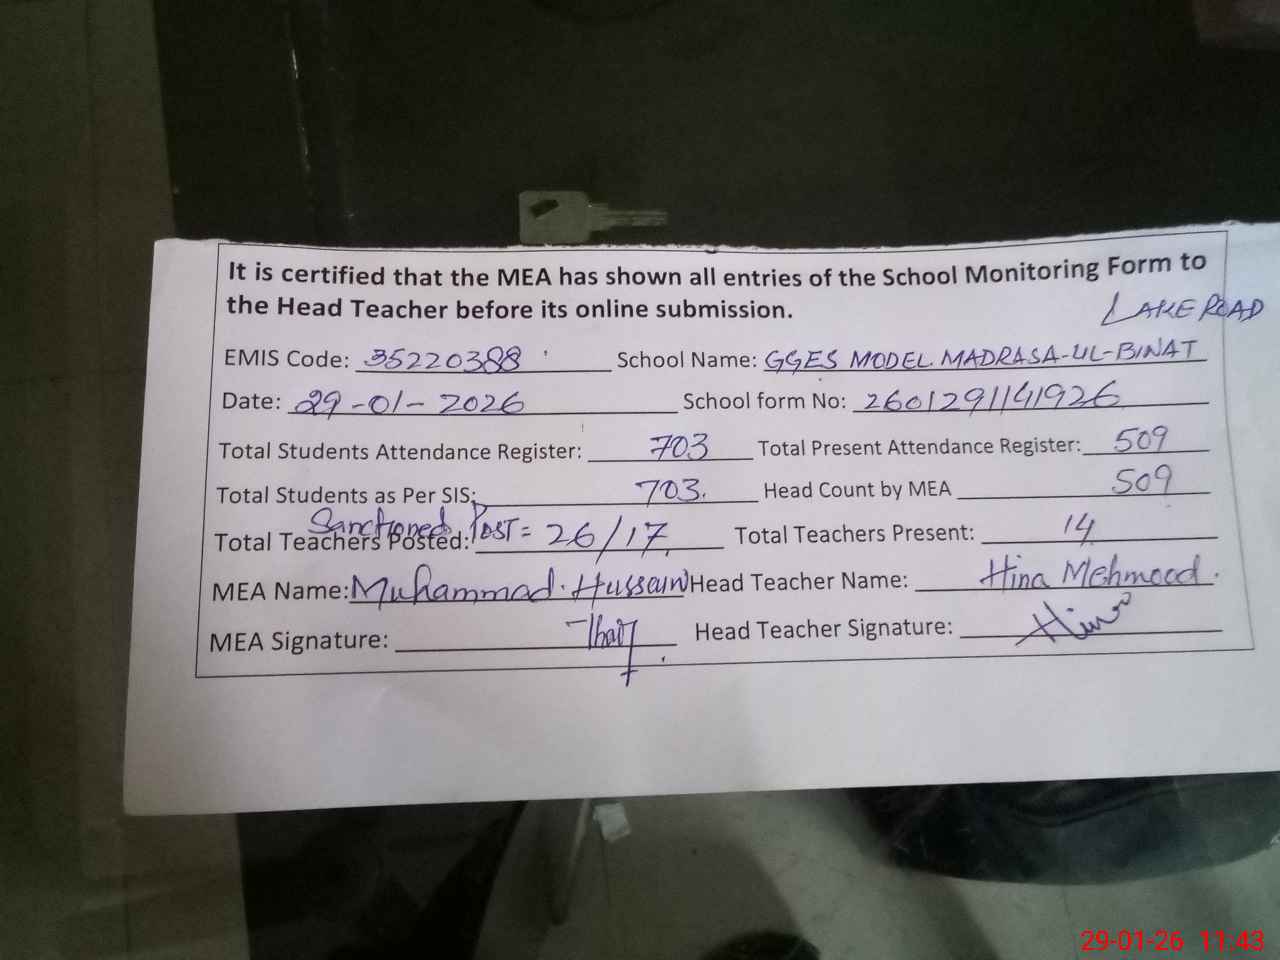 It is certified that the MEA has shown all entries of the School Monitoring Form to
the Head Teacher before its online submission.
LAKE ROAD
EMIS Code: 35220388 School Name: GGES MODEL MADRASA-UL-BINAT
Date: 29-01-2026 School form No: 2601291141926
Total Students Attendance Register: 703 Total Present Attendance Register: 509
Total Students as Per SIS: 703. Head Count by MEA 509
Sanctioned Post =
Total Teachers Posted: 26/17 Total Teachers Present: 14
MEA Name: Muhammad Hussain Head Teacher Name: Hina Mehmood.
MEA Signature: Head Teacher Signature: Hina
29-01-26 11:43